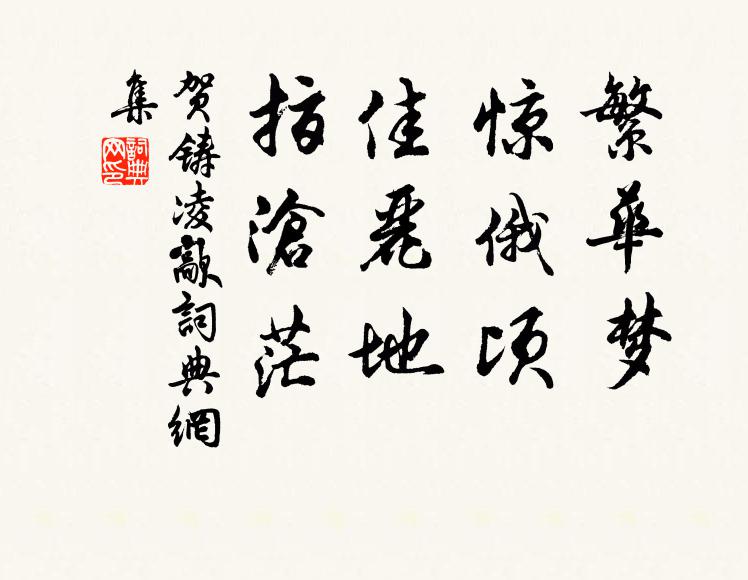 繁華梦
惊俄顷
佳麗地
指滄茫
贺鑄凌歊詞典網
集
詞典网印